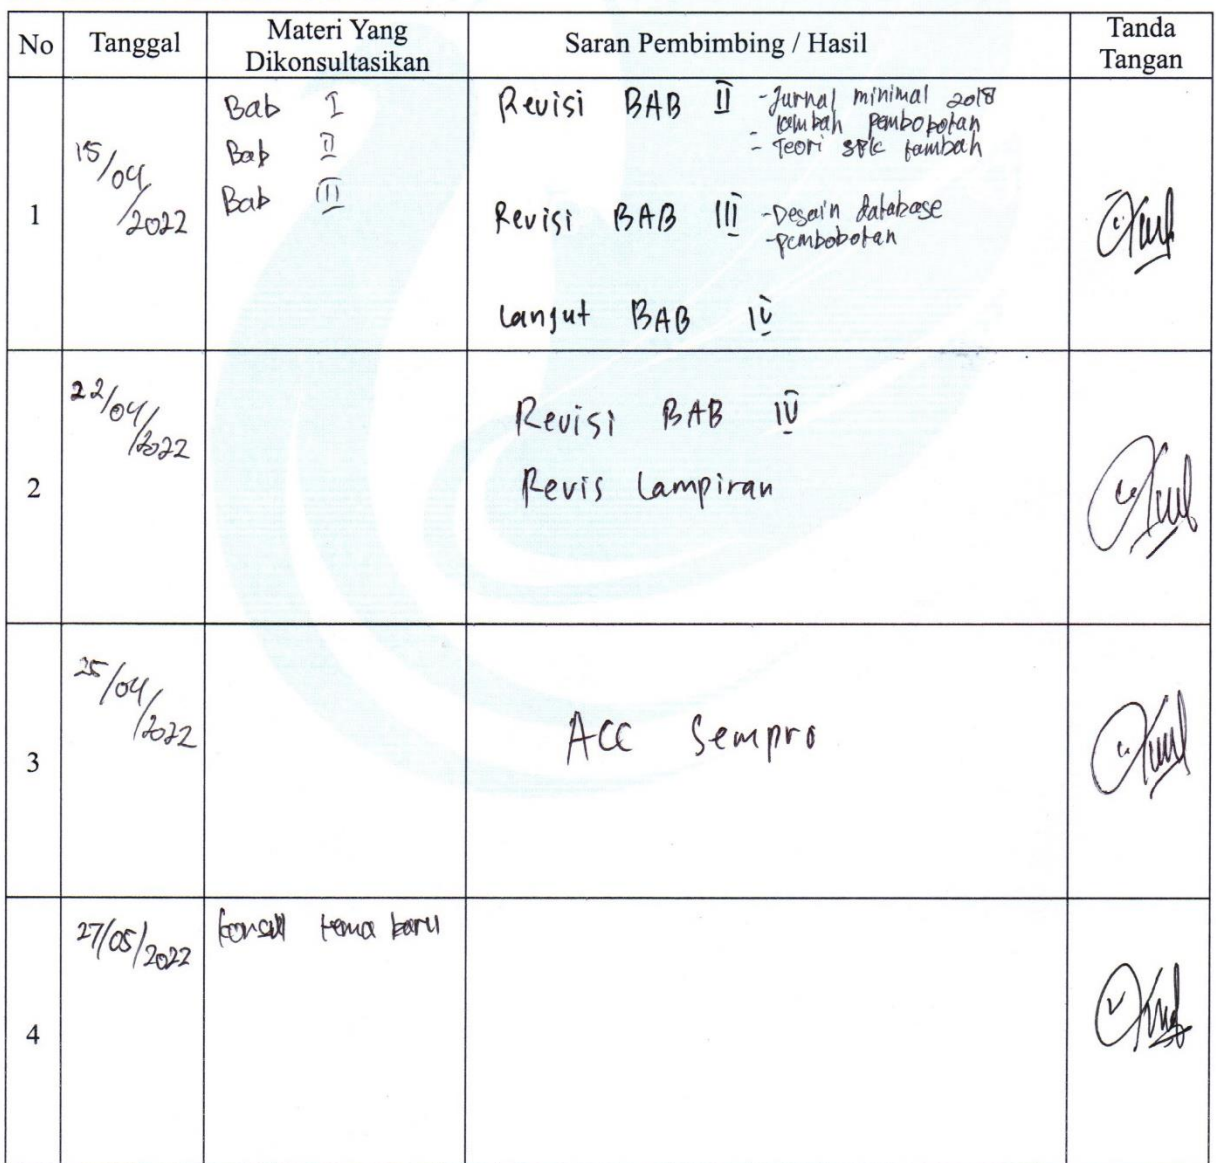 No Tanggal Materi Yang Dikonsultasikan Saran Pembimbing / Hasil Tanda Tangan
1
15/04/2022
Bab I
Bab II
Bab III
Revisi BAB II - Jurnal minimal 2018
- tambah pembobotan
- Teori SPK tambah
Revisi BAB III - Desain database
- pembobotan
Lanjut BAB IV
2
22/04/2022
Revisi BAB IV
Revis Lampiran
3
25/04/2022
ACC Sempro
4
27/05/2022
konsul tema baru